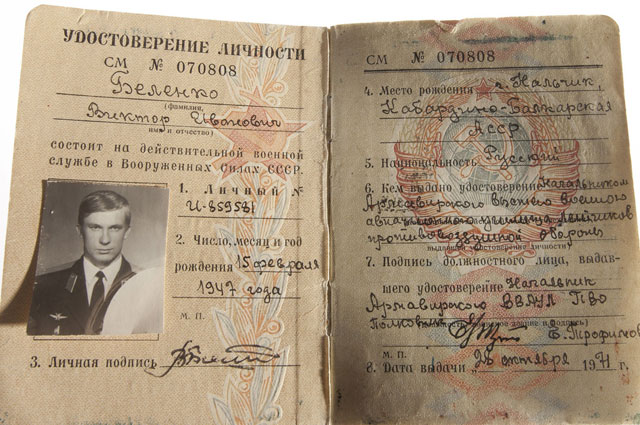 УДОСТОВЕРЕНИЕ ЛИЧНОСТИ
СМ № 070808
Беленко
(фамилия,
Виктор Иванович
имя и отчество)
состоит на действительной военной
службе в Вооруженных Силах СССР.
1. Личный №
И-859581
2. Число, месяц и год
рождения 15 февраля
1947 года
М. П.
3. Личная подпись
СМ № 070808
4. Место рождения г. Нальчик,
Кабардино-Балкарская
АССР
5. Национальность Русский
6. Кем выдано удостоверение Начальником
Армавирского высшего военного
авиационного училища летчиков
противовоздушной обороны
выдавшей удостоверение личности)
7. Подпись должностного лица, выдав-
шего удостоверение Начальник
Армавирского ВВАУЛ ПВО
Полковник
звание и подпись)
М. П.
8. Дата выдачи 28 октября 1971 г.